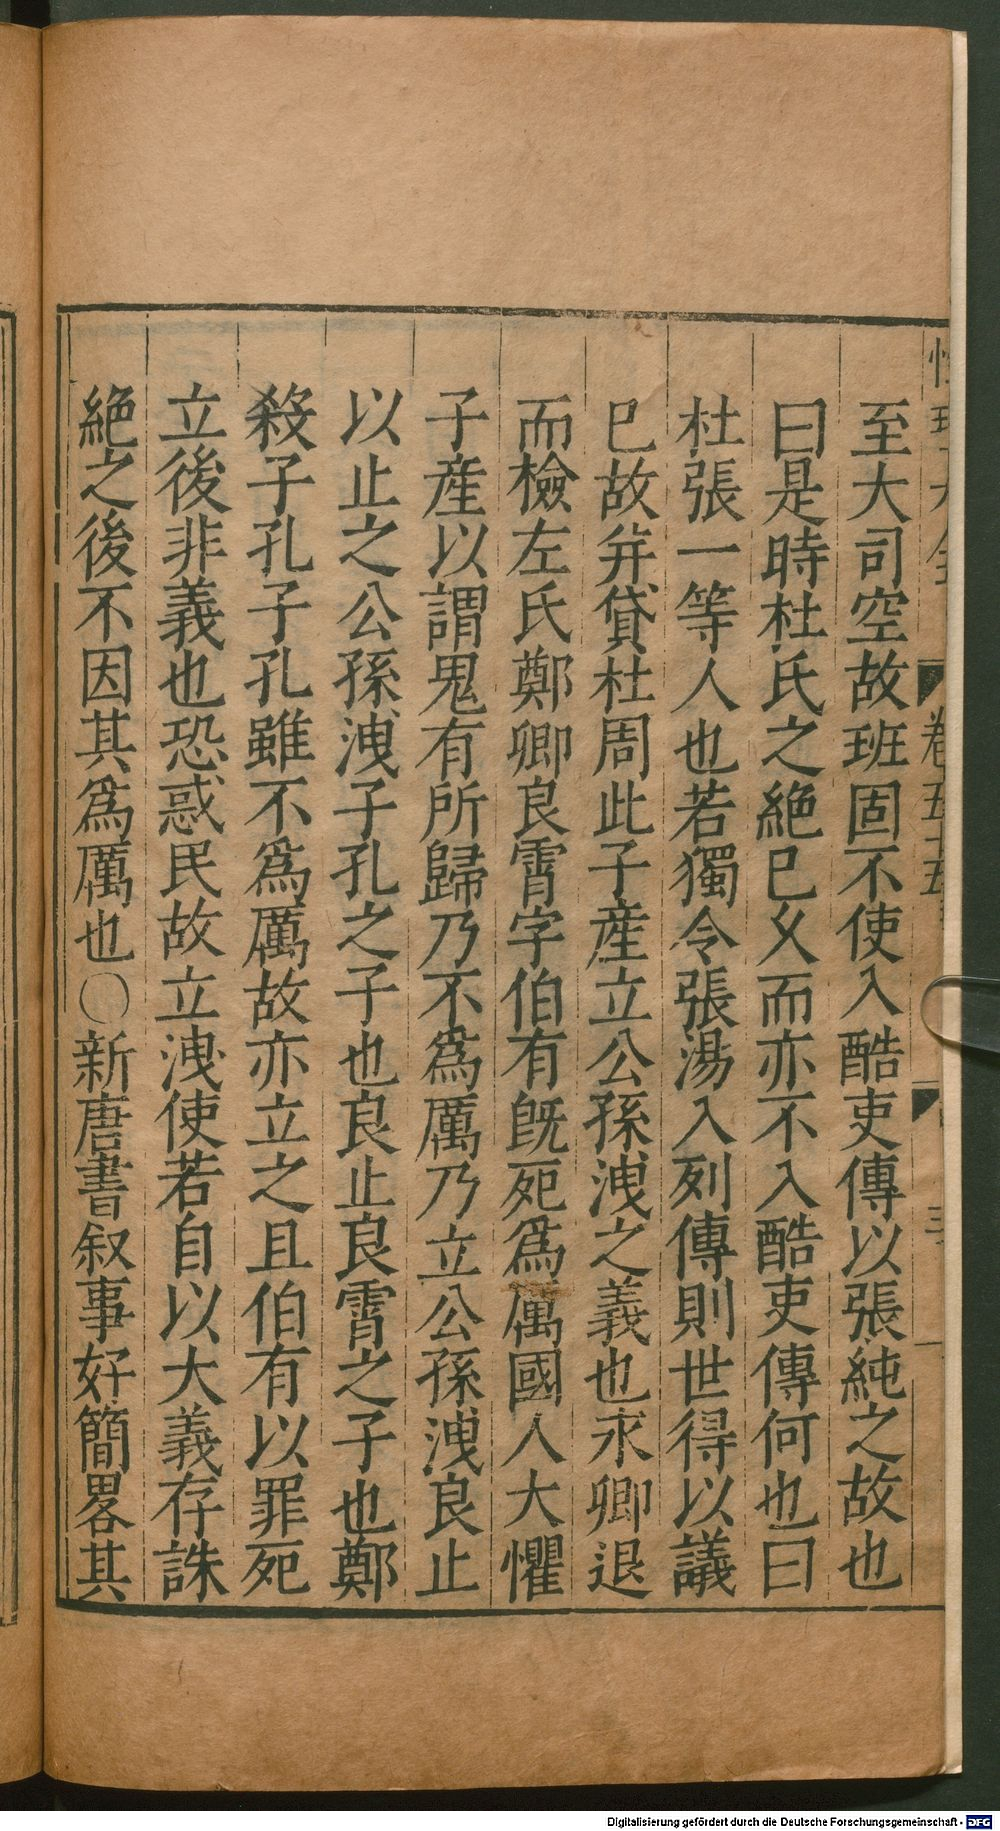 性理大全 卷五十五 三
至大司空故班固不使入酷吏傳以張純之故也
曰是時杜氏之絶已乆而亦不入酷吏傳何也曰
杜張一等人也若獨令張湯入列傳則世得以議
已故幷貸杜周此子產立公孫洩之義也永卿退
而檢左氏鄭卿良霄字伯有旣死爲厲國人大懼
子產以謂鬼有所歸乃不爲厲乃立公孫洩良止
以止之公孫洩子孔之子也良止良霄之子也鄭
殺子孔子孔雖不爲厲故亦立之且伯有以罪死
立後非義也恐惑民故立洩使若自以大義存誅
絶之後不因其爲厲也〇新唐書叙事好簡畧其
Digitalisierung gefördert durch die Deutsche Forschungsgemeinschaft - DFG